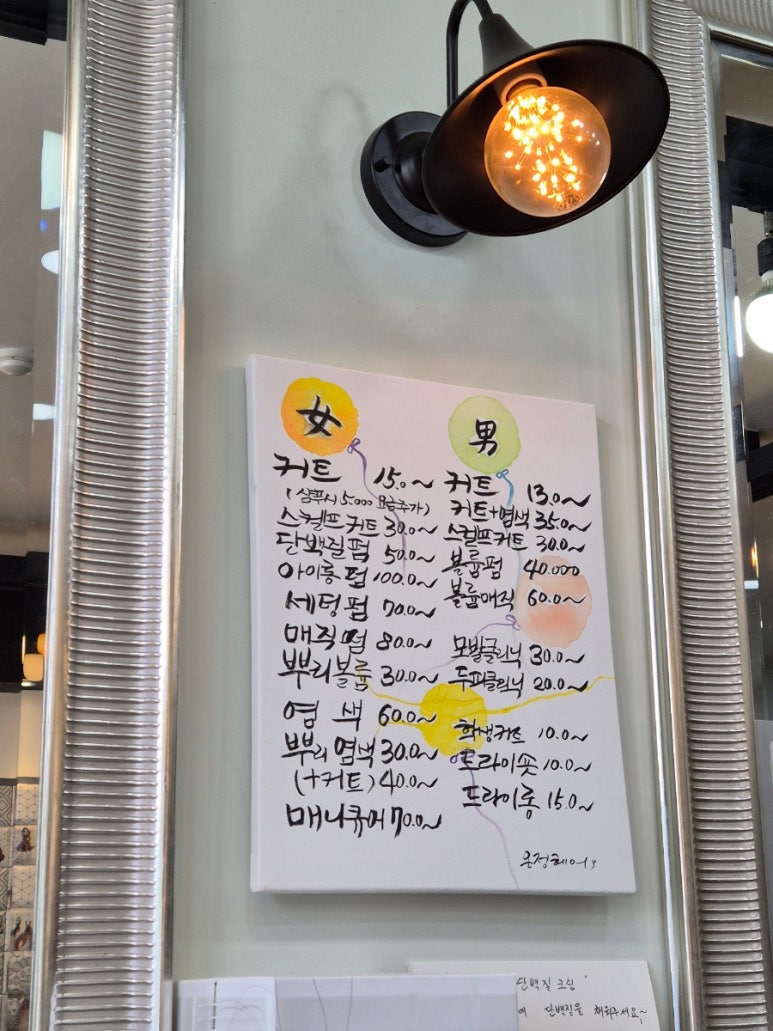 女
커트 15.0~
(샴푸시 5.000 요금추가)
스컬프커트 30.0~
단백질펌 50.0~
아이롱펌 100.0~
세팅펌 70.0~
매직펌 80.0~
뿌리볼륨 30.0~
염색 60.0~
뿌리염색 30.0~
(+커트) 40.0~
매니큐어 70.0~
男
커트 13.0~
커트+염색 35.0~
스컬프커트 30.0~
볼륨펌 40.000
볼륨매직 60.0~
모발클리닉 30.0~
두피클리닉 20.0~
학생커트 10.0~
드라이숏 10.0~
드라이롱 15.0~
은정헤어
단백질 크림"
에 단백질을 채워주세요~